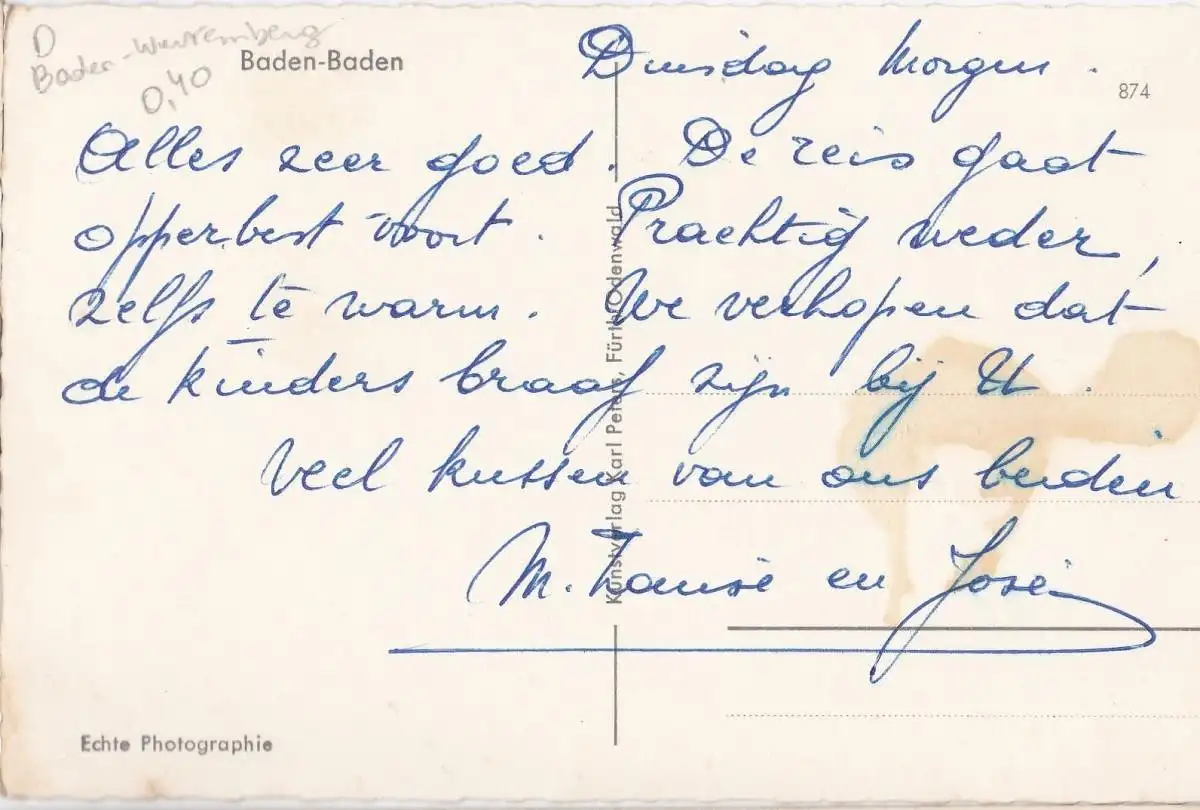 D
Baden-Wurtemberg
0,40
Baden-Baden
874
Dinsdag Morgen.
Alles zeer goed. De reis gaat
opperbest voort. Prachtig weder,
zelfs te warm. We verhopen dat
de kinders braaf zijn bij U.
Veel kussen van ons beiden
M. en José
Kunstverlag Karl Peter, Fürth/Odenwald
Echte Photographie